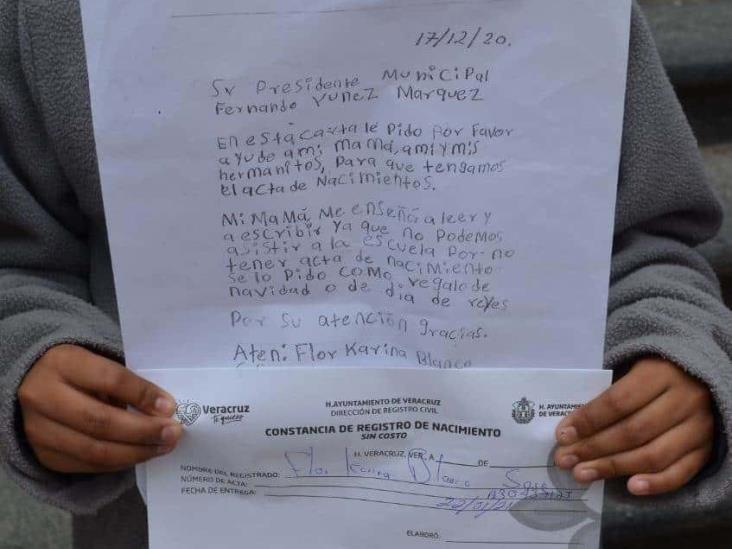 17/12/20.
Sr Presidente Municipal
Fernando Yunez Marquez
En està carta le Pido por Favor
ayude a mi mamá, a mi y mis
hermanitos, Para que tengamos
el acta de Nacimientos.
Mi Mamá Me enseña a leer y
a escribir ya que no Podemos
asistir a la escuela Por no
tener acta de nacimiento
se lo Pido como regalo de
navidad o de día de reyes
Por su atención gracias.
Aten: Flor Karina Blanco
Veracruz
te quiero
H.AYUNTAMIENTO DE VERACRUZ
DIRECCIÓN DE REGISTRO CIVIL
H. AYUNTAMIENTO
DE VERACRUZ
CONSTANCIA DE REGISTRO DE NACIMIENTO
SIN COSTO
H. VERACRUZ, VER. A DE
NOMBRE DEL REGISTRADO: Flor Karina Blanco
NÚMERO DE ACTA:
FECHA DE ENTREGA: 22/01/21
ELABORÓ: